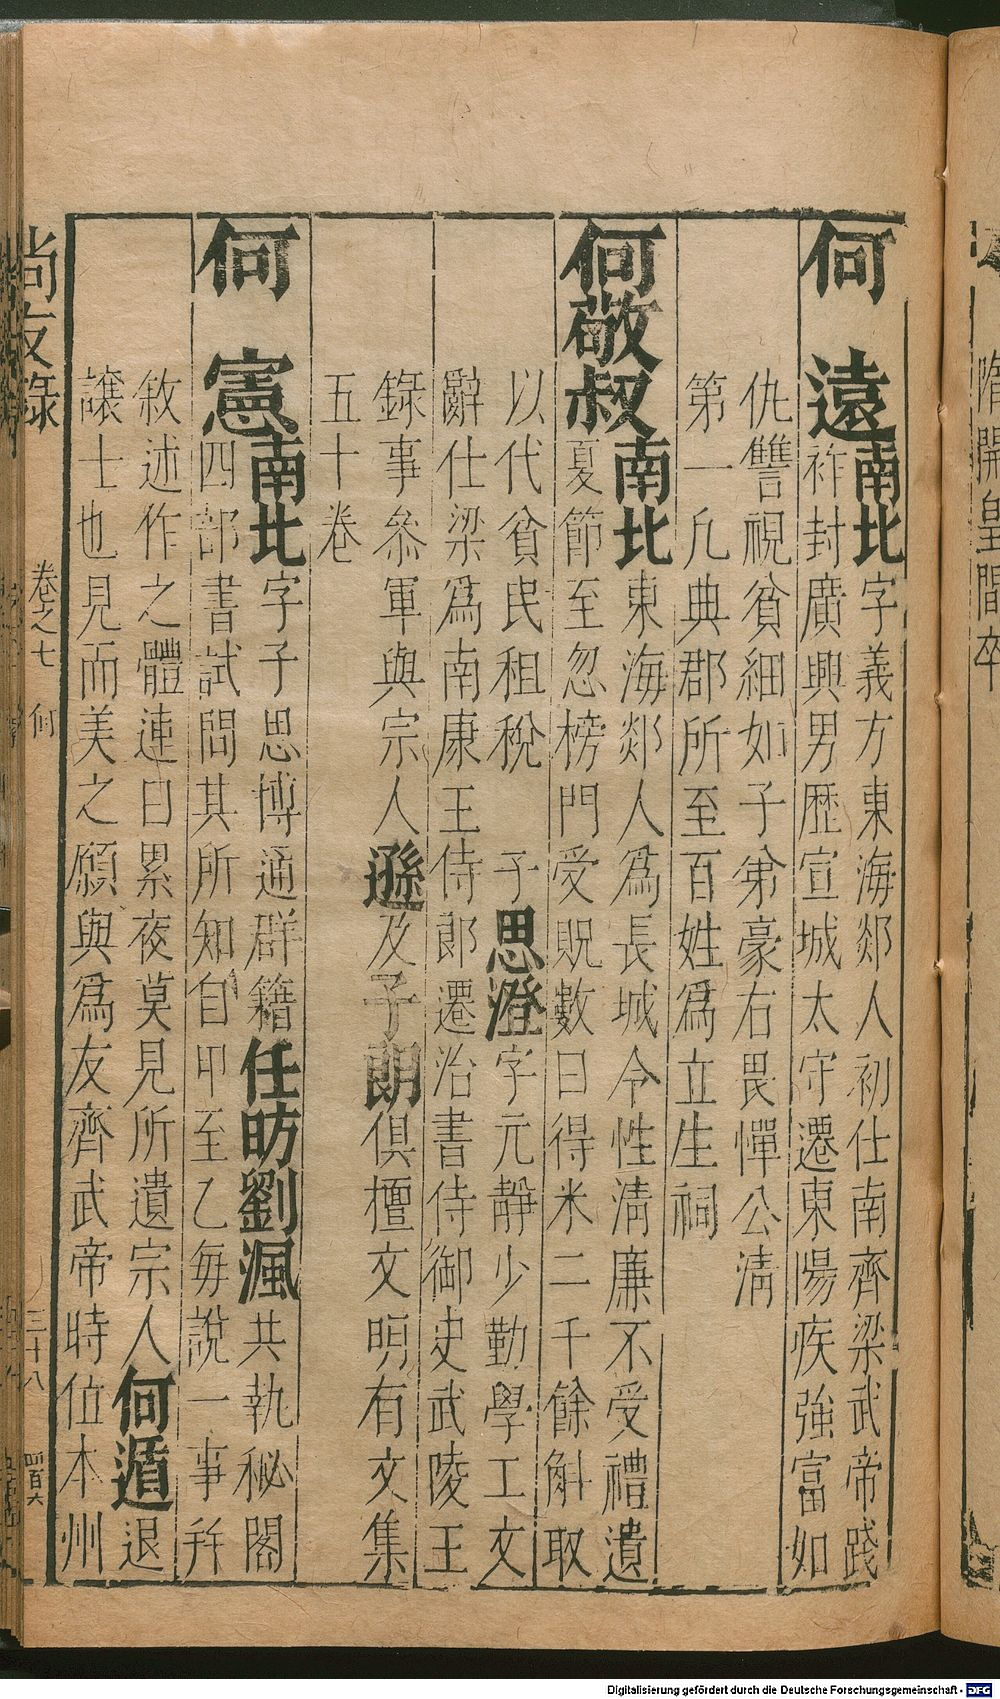 何遠南北字義方東海郯人初仕南齊梁武帝踐
祚封廣興男歷宣城太守遷東陽疾強富如
仇讐視貧細如子弟豪右畏憚公清
第一凡典郡所至百姓爲立生祠
何敬叔南北東海郯人爲長城令性清廉不受禮遺
夏節至忽榜門受貺數日得米二千餘斛取
以代貧民租稅 子思澄字元靜少勤學工文
辭仕梁爲南康王侍郎遷治書侍御史武陵王
錄事參軍與宗人遜及子朗俱擅文明有文集
五十卷
何憲南北字子思博通群籍任昉劉渢共執秘閣
四部書試問其所知自甲至乙每說一事幷
敘述作之體連日累夜莫見所遺宗人何遁退
讓士也見而美之願與爲友齊武帝時位本州
尚友錄 卷之七 何 三十八 四百六
隋開皇間卒
Digitalisierung gefördert durch die Deutsche Forschungsgemeinschaft - DFG